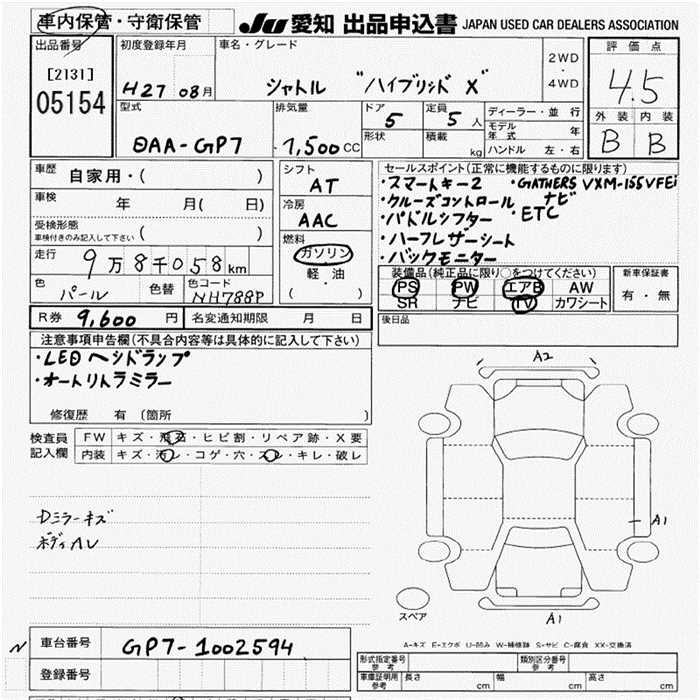 車内保管・守衛保管 JU 愛知 出品申込書 JAPAN USED CAR DEALERS ASSOCIATION
出品番号 初度登録年月 車名・グレード 2WD・4WD 評価点
[2131]
05154 H27 08月 シャトル "ハイブリッド X" 4.5
型式 排気量 ドア 定員 ディーラー・並行 外装 内装
DAA-GP7 1,500CC 5 5人 モデル年式 年 B B
形状 積載 kg ハンドル 左・右
車歴 自家用・( ) シフト セールスポイント(正常に機能するものに限ります)
AT ・スマートキー2 ・GATHERS VXM-155VFEi
車検 年 月( 日) 冷房 ・クルーズコントロール ナビ
AAC ・パドルシフター ・ETC
受検形態 ( )
車検付きのみ記入して下さい ・ハーフレザーシート
走行 9万8千058km 燃料 ・バックモニター
ガソリン 装備品(純正品に限り○をつけてください) 新車保証書
色 パール 色替 色コード NH788P 軽・油 PS PW エアB AW 有・無
( ) SR ナビ TV カワシート
R券 9,600円 名変通知期限 月 日 後日品
注意事項申告欄(不具合内容等は具体的に記入して下さい)
・LED ヘッドランプ
・オートリトラミラー
修復歴 有 (箇所 )
検査員 FW キズ・飛石・ヒビ割・リペア跡・X要
記入欄 内装 キズ・汚レ・コゲ・穴・スレ・キレ・破レ
A2
Dミラーキズ
ボディAU
A1
スペア A1
A-キズ E-エクボ U-凹み W-補修跡 S-サビ C-腐食 XX-交換済
N 車台番号 GP7-1002594
登録番号
形式指定番号 参考 類別区分番号 参考
車庫証明用 参考 長さ cm 幅 cm 高さ cm